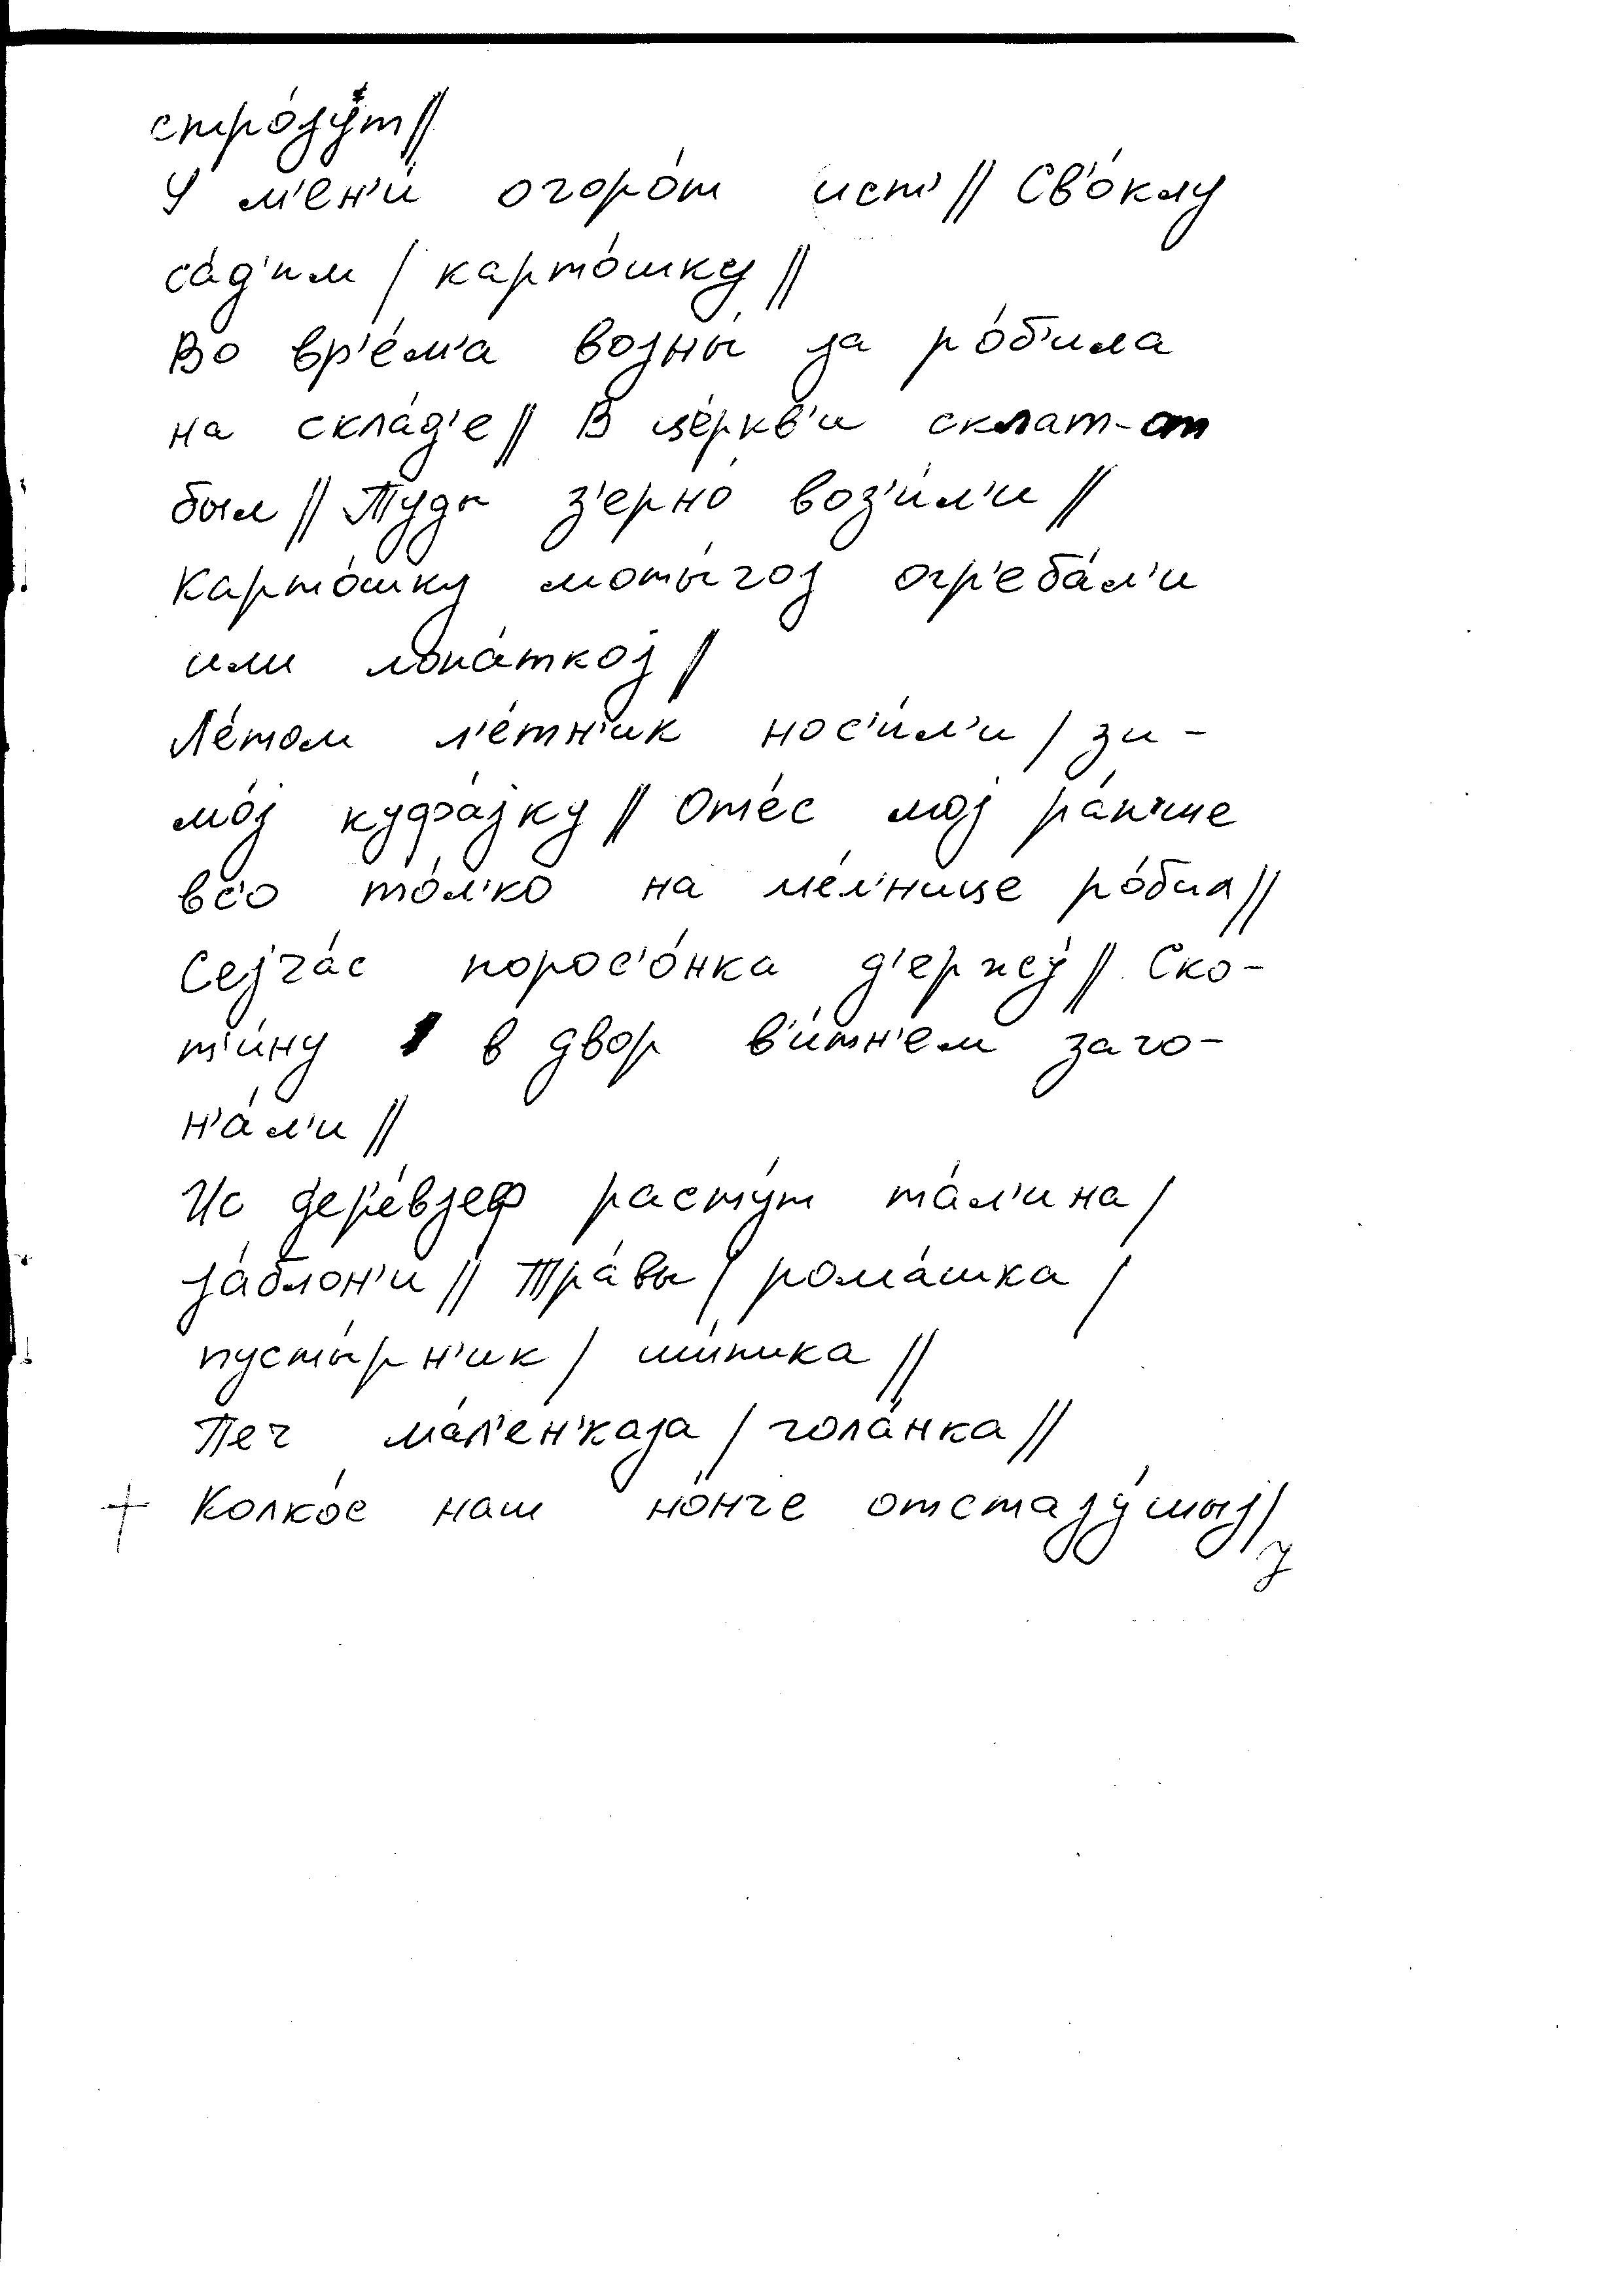 стро́jут//
У м'ен'и́ огоро́т ист'// Св'о́клу
са́д'им / карто́шку//
Во вр'е́м'а воjны́ jа ро́б'ила
на скла́д'е// В це́ркв'и склат-от
был// Туды з'ерно́ воз'и́л'и//
Карто́шку моты́гоj огр'еба́л'и
или лопа́ткоj//
Ле́том л'е́тн'ик нос'и́л'и / зи-
мо́j куфа́jку// Оте́с моj ра́н'ше
вс'о то́л'ко на ме́л'нице ро́бил//
Сеjча́с порос'о́нка д'ержу́// Ско-
т'и́ну в двор в'и́тн'ем заго-
н'а́л'и//
Ис дер'е́вjеф расту́т та́л'ина/
jа́блон'и// Тра́вы / рома́шка /
пусты́рн'ик / ши́пика//
Печ ма́л'ен'каjа / гола́нка//
+ Колхо́с наш но́нче отстаjу́шыj//